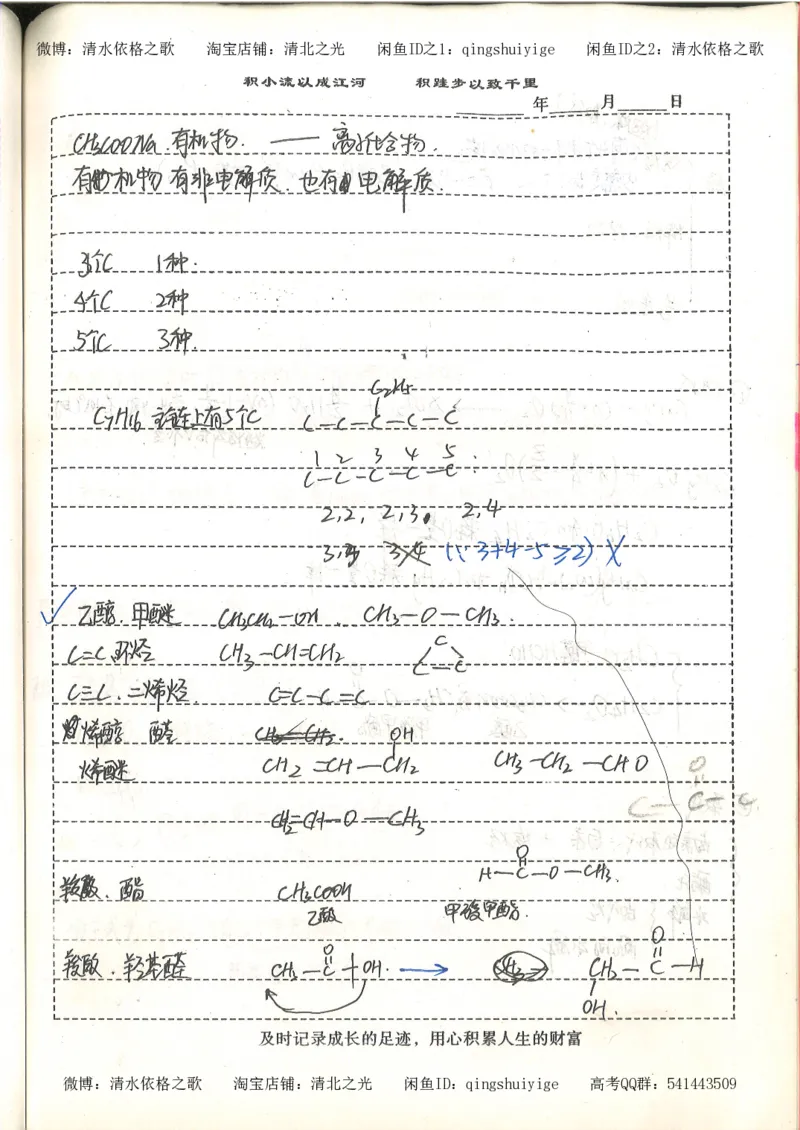 微博：清水依格之歌 淘宝店铺：清北之光 闲鱼ID之1：qingshuiyige 闲鱼ID之2：清水依格之歌
积小流以成江河 积跬步以致千里
年 月 日
CH3COONa 有机物. —— 离子化合物.
有机物有非电解质. 也有电解质.
3个C 1种.
4个C 2种
5个C 3种.
C2H5
C7H16 主链上有5个C C-C-C-C-C
1 2 3 4 5
C-C-C-C-C
2,2, 2,3, 2,4
3,3 (∵ 3+4-5≥2) X
✓ 乙醇. 甲醚 CH3CH2-OH. CH3-O-CH3.
C=C, 环烃 CH3-CH=CH2 C C-C
C≡C. 二烯烃. C=C-C=C
烯醇 醛 CH2=CH2. OH
烯醚 CH2=CH-CH2 CH3-CH2-CHO
CH2=CH-O-CH3
O
羧酸. 酯 CH3COOH H-C-O-CH3.
乙酸 甲酸甲酯.
O O
羧酸. 羟基醛 CH3-C-OH. → CH2-C-H
OH.
及时记录成长的足迹，用心积累人生的财富
微博：清水依格之歌 淘宝店铺：清北之光 闲鱼ID：qingshuiyige 高考QQ群：541443509